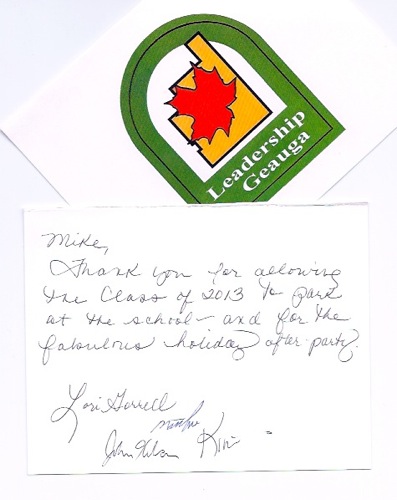 Leadership
Geauga
Mike,
Thank you for allowing
the Class of 2013 to park
at the school - and for the
fabulous holiday after party.
Lori Gorrell
John
Kim